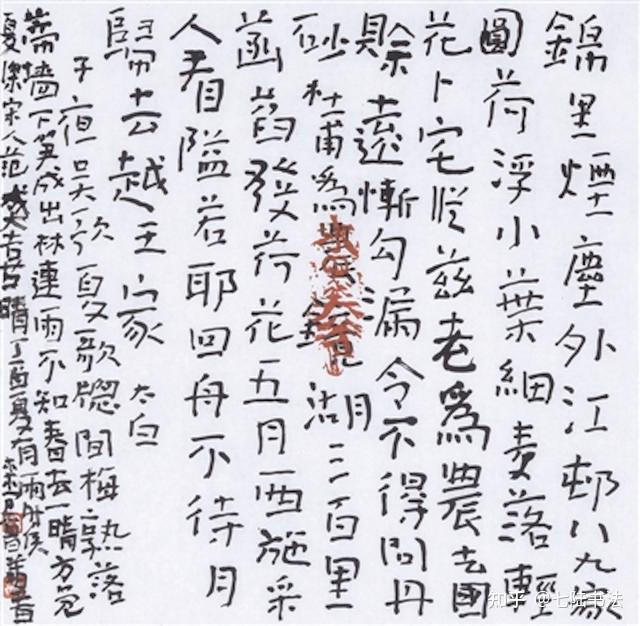 錦里煙塵外江邨八九家
圓荷浮小葉細麥落輕
花卜宅從茲老為農去國
賒遠慚勾漏令不得問丹
砂 杜甫為農 鏡湖三百里
菡萏發荷花五月西施采
人看隘若耶回舟不待月
歸去越王家 太白
子夜吳歌夏歌 窗間梅熟落
蒂牆下筍成出林連雨不知春去一晴方覺
夏深宋人范成大喜晴丁酉夏有雨
知乎 @七陆书法